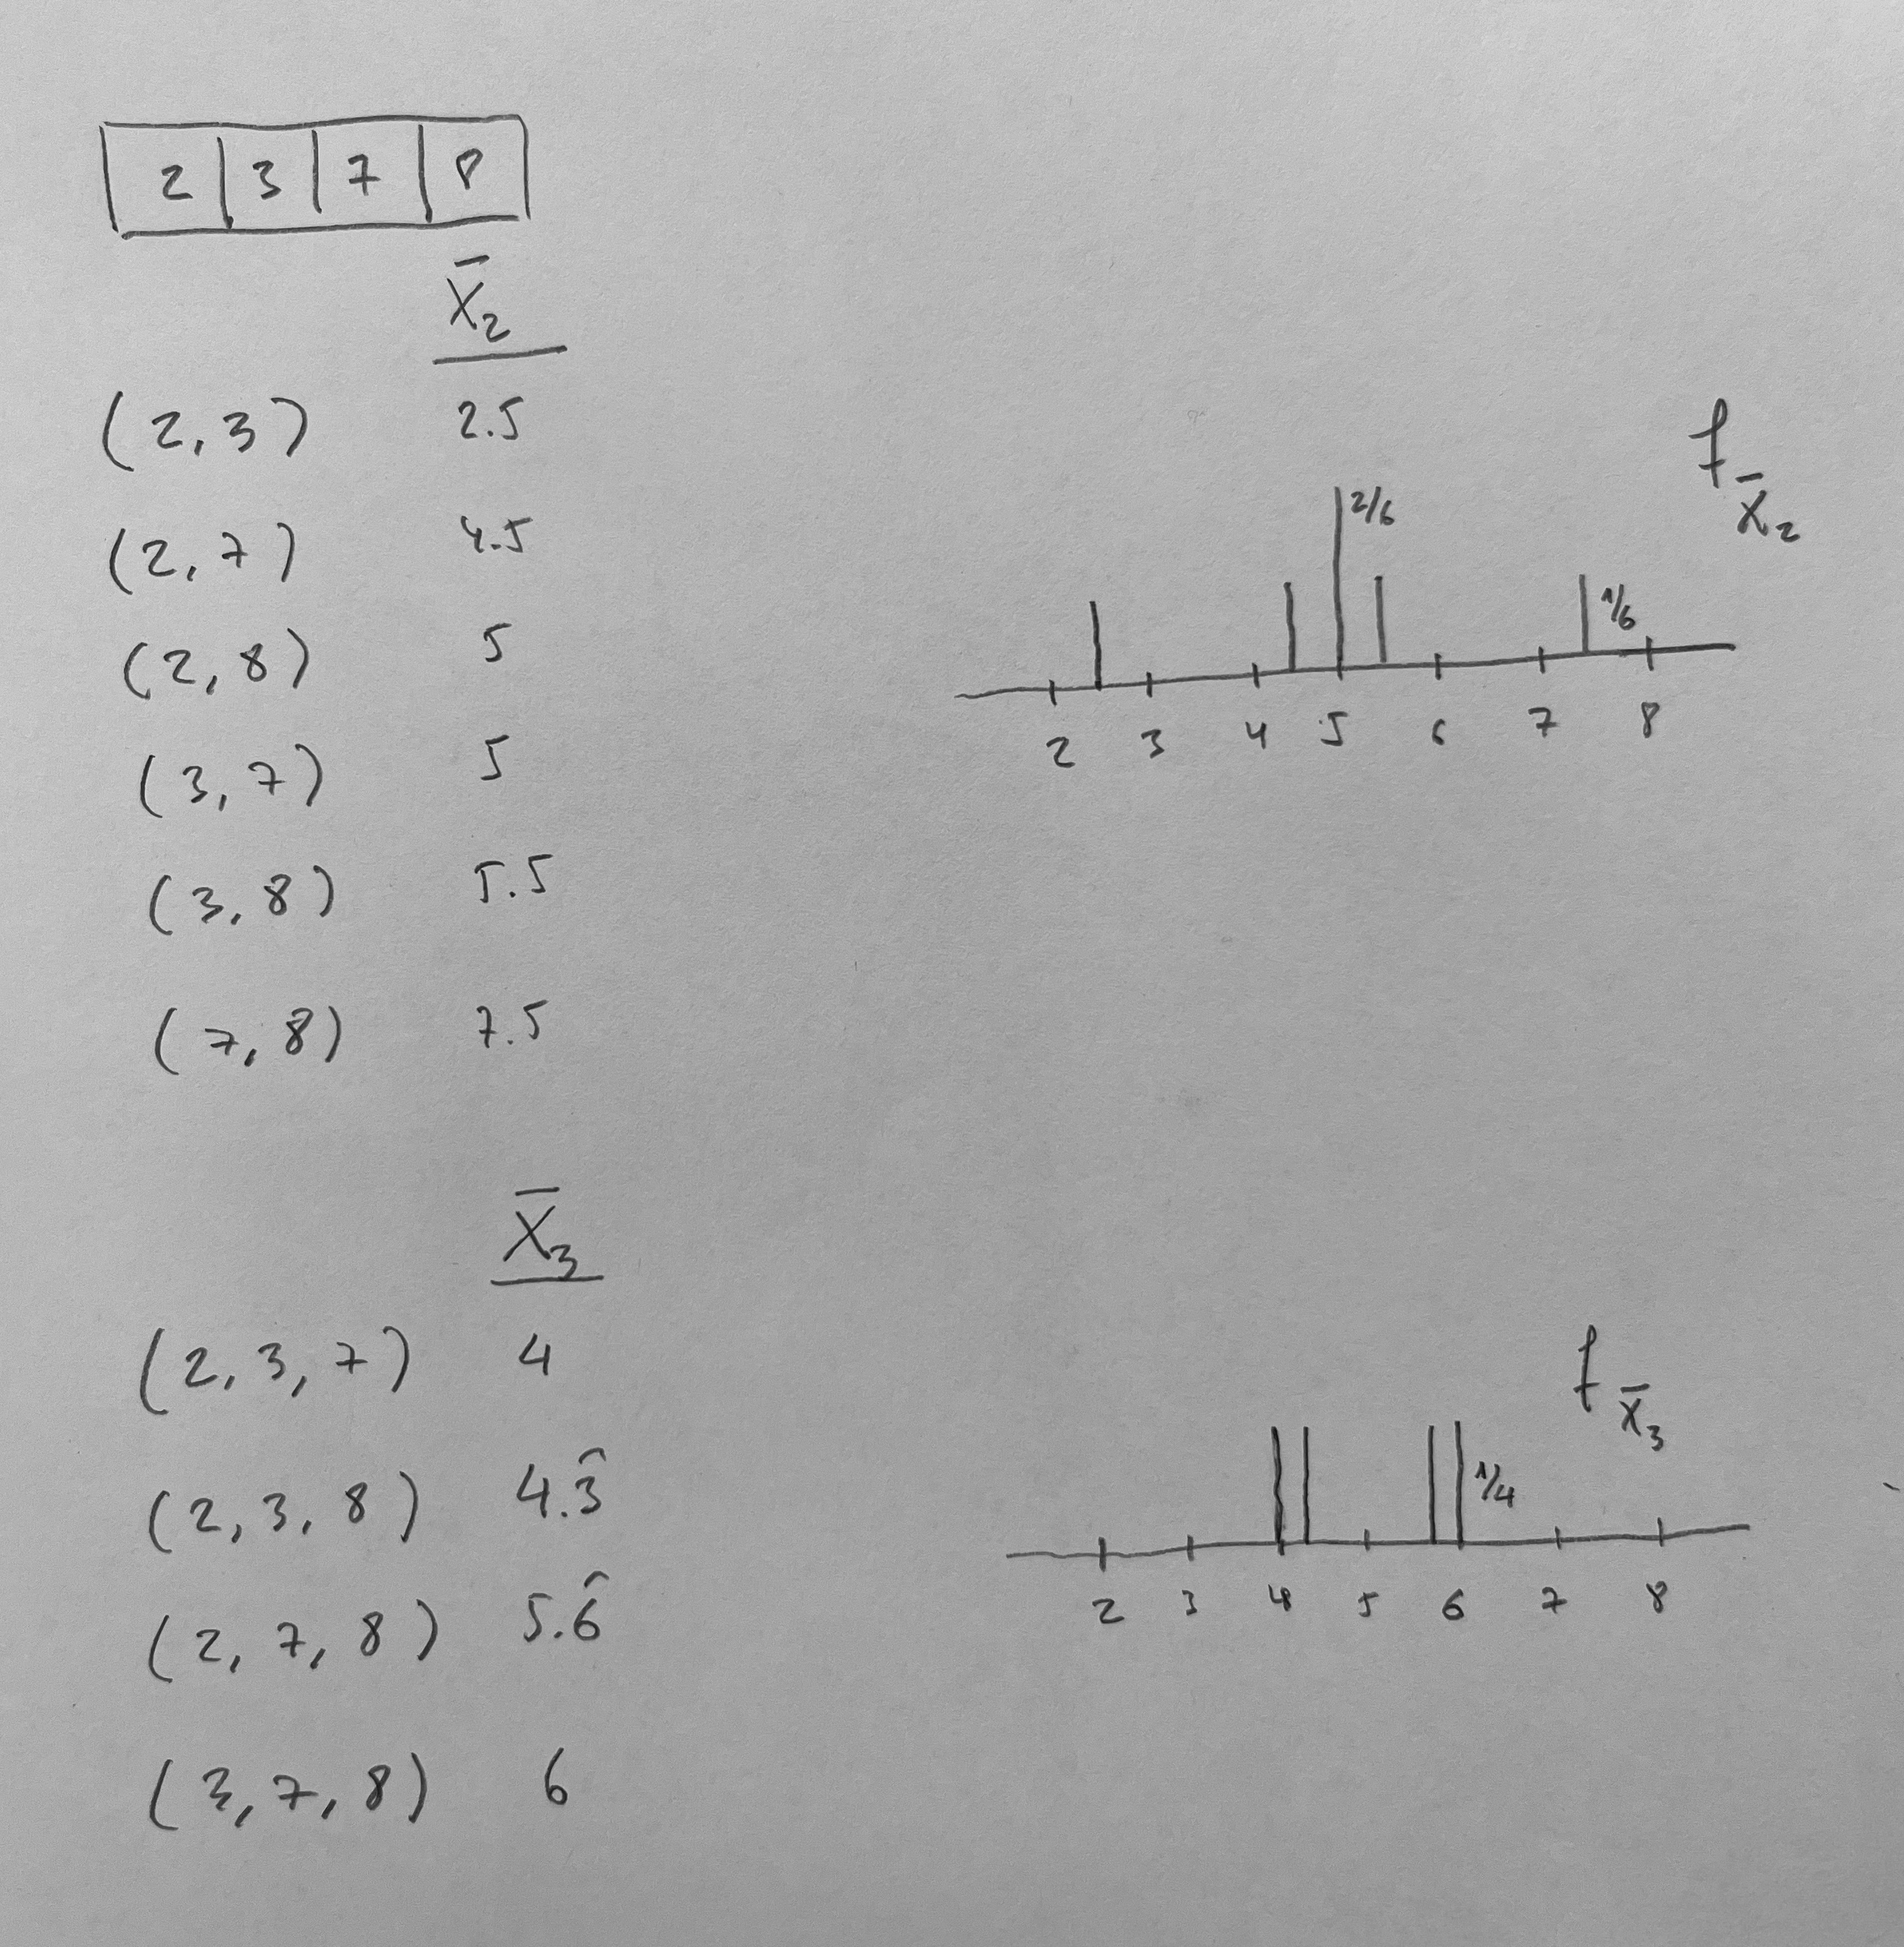 2 3 7 8
X̄₂
(2,3) 2.5
(2,7) 4.5
(2,8) 5
(3,7) 5
(3,8) 5.5
(7,8) 7.5
f X̄₂
2/6
1/6
2 3 4 5 6 7 8
X̄₃
(2,3,7) 4
(2,3,8) 4.3̑
(2,7,8) 5.6̑
(3,7,8) 6
f X̄₃
1/4
2 3 4 5 6 7 8